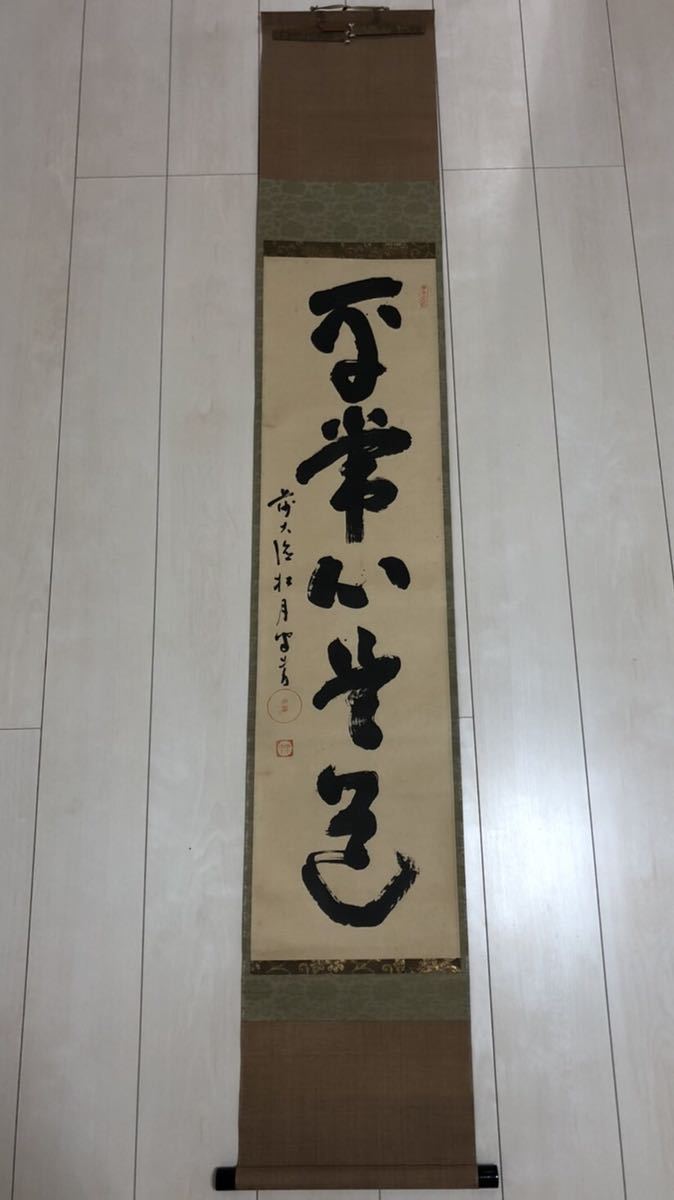 平常心是道
前大徳松月宙宝